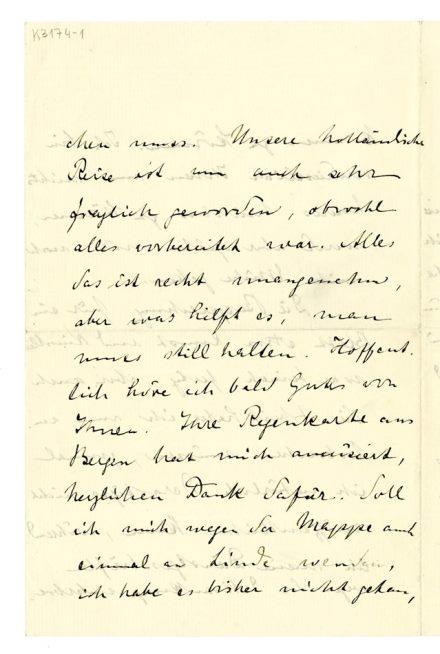 K3174-1
chen muss. Unsere holländische
Reise ist nun auch sehr
fraglich geworden, obwohl
alles vorbereitet war. Alles
das ist recht unangenehm,
aber was hilft es, man
muss still halten. Hoffent-
lich höre ich bald Gutes von
Ihnen. Ihre Regenkarte aus
Bergen hat mich amüsiert,
herzlichen Dank dafür. Soll
ich mich wegen der Mappe auch
einmal an Linde wenden,
ich habe es bisher nicht getan,